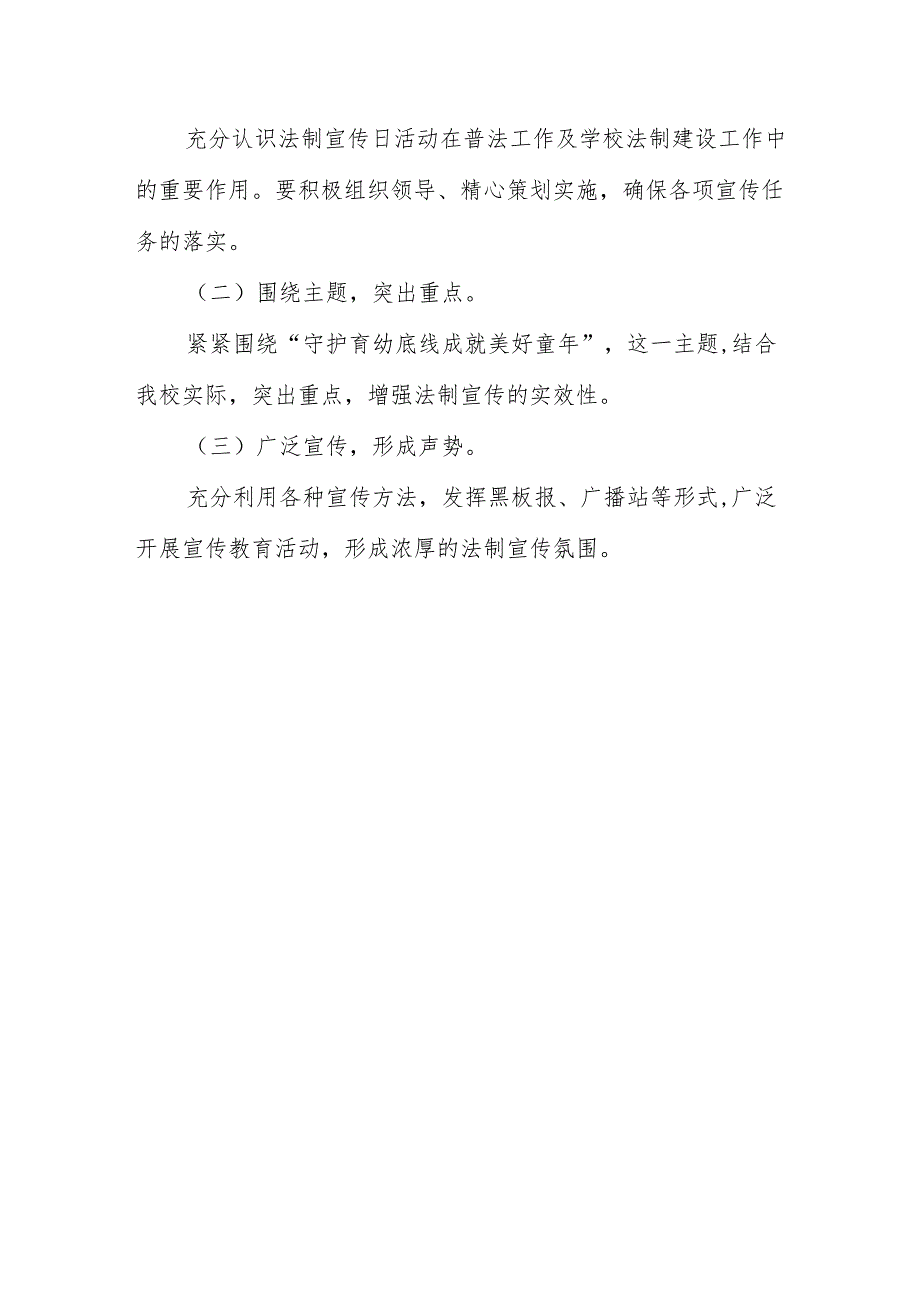 充分认识法制宣传日活动在普法工作及学校法制建设工作中
的重要作用。要积极组织领导、精心策划实施，确保各项宣传任
务的落实。
（二）围绕主题，突出重点。
紧紧围绕“守护育幼底线成就美好童年”，这一主题,结合
我校实际，突出重点，增强法制宣传的实效性。
（三）广泛宣传，形成声势。
充分利用各种宣传方法，发挥黑板报、广播站等形式,广泛
开展宣传教育活动，形成浓厚的法制宣传氛围。